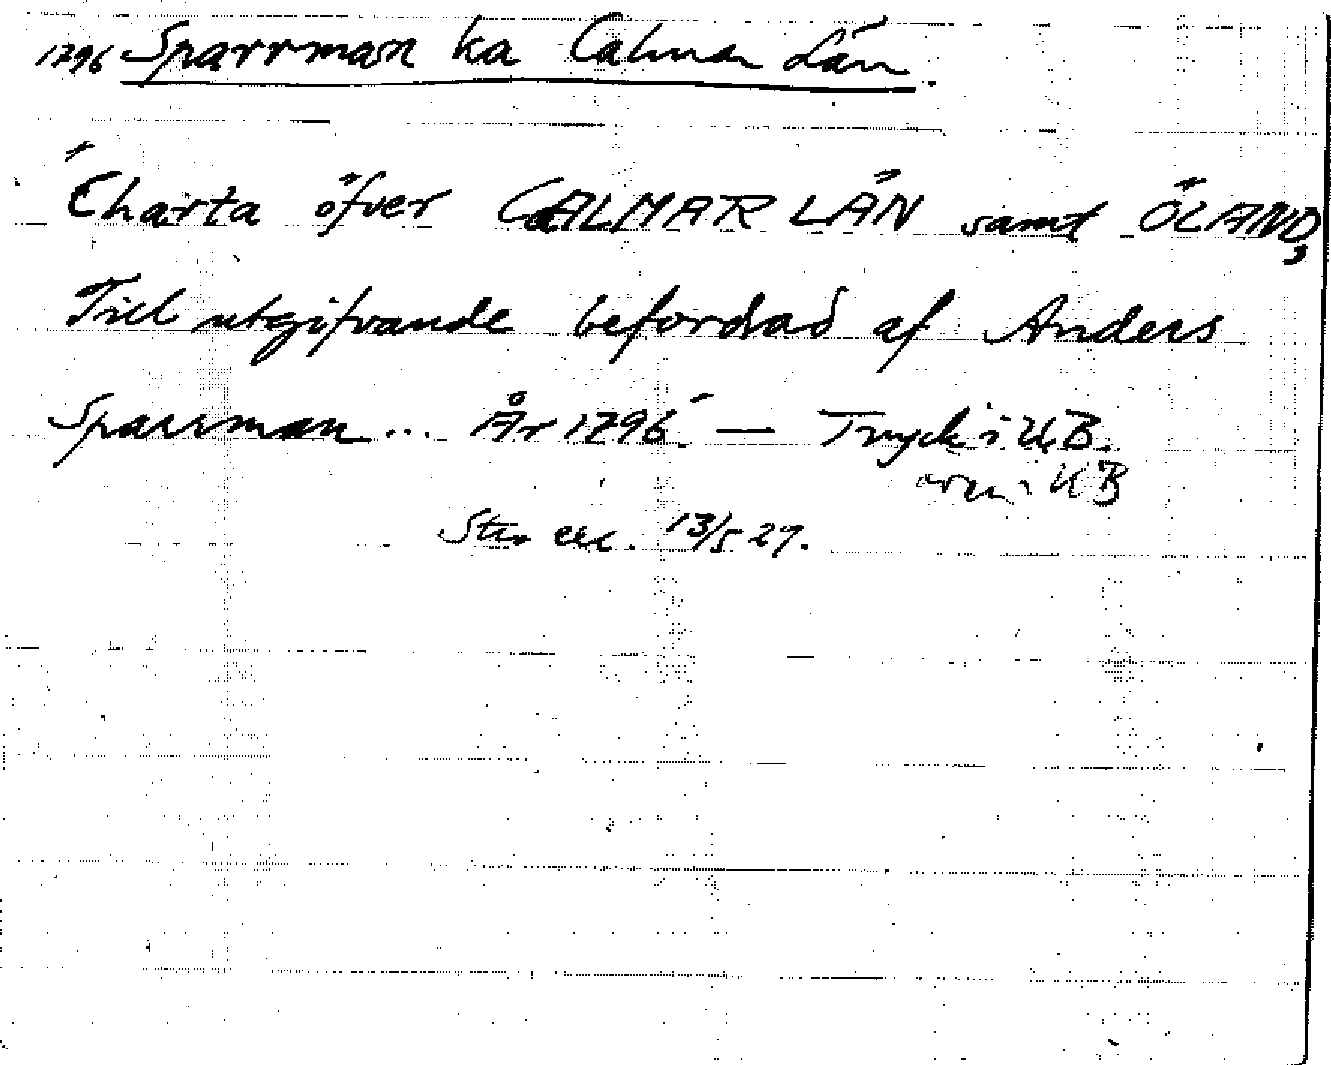 1796 Sparrman ka Calmar Län.
"Charta öfver CALMAR LÄN samt ÖLAND,
Till utgifvande befordrad af Anders
Sparrman... År 1796." — Tryck i UB.
i KB
13/5 27.